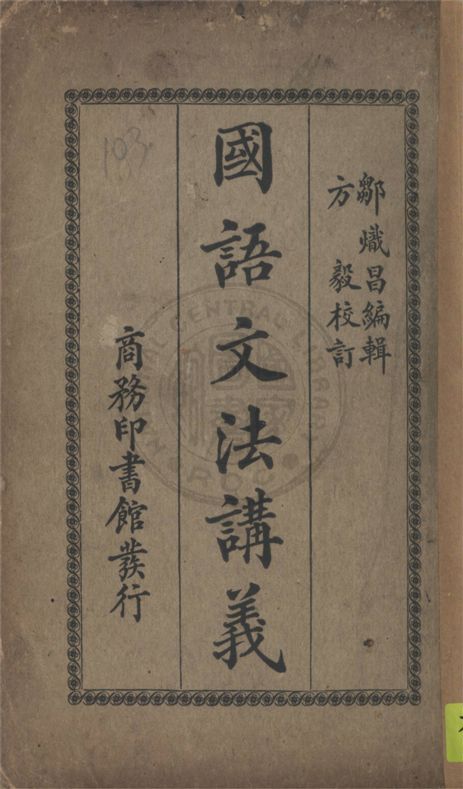 鄒熾昌編輯
方毅校訂
國語文法講義
商務印書館發行
103
NATIONAL CENTRAL LIBRARY
R.O.C